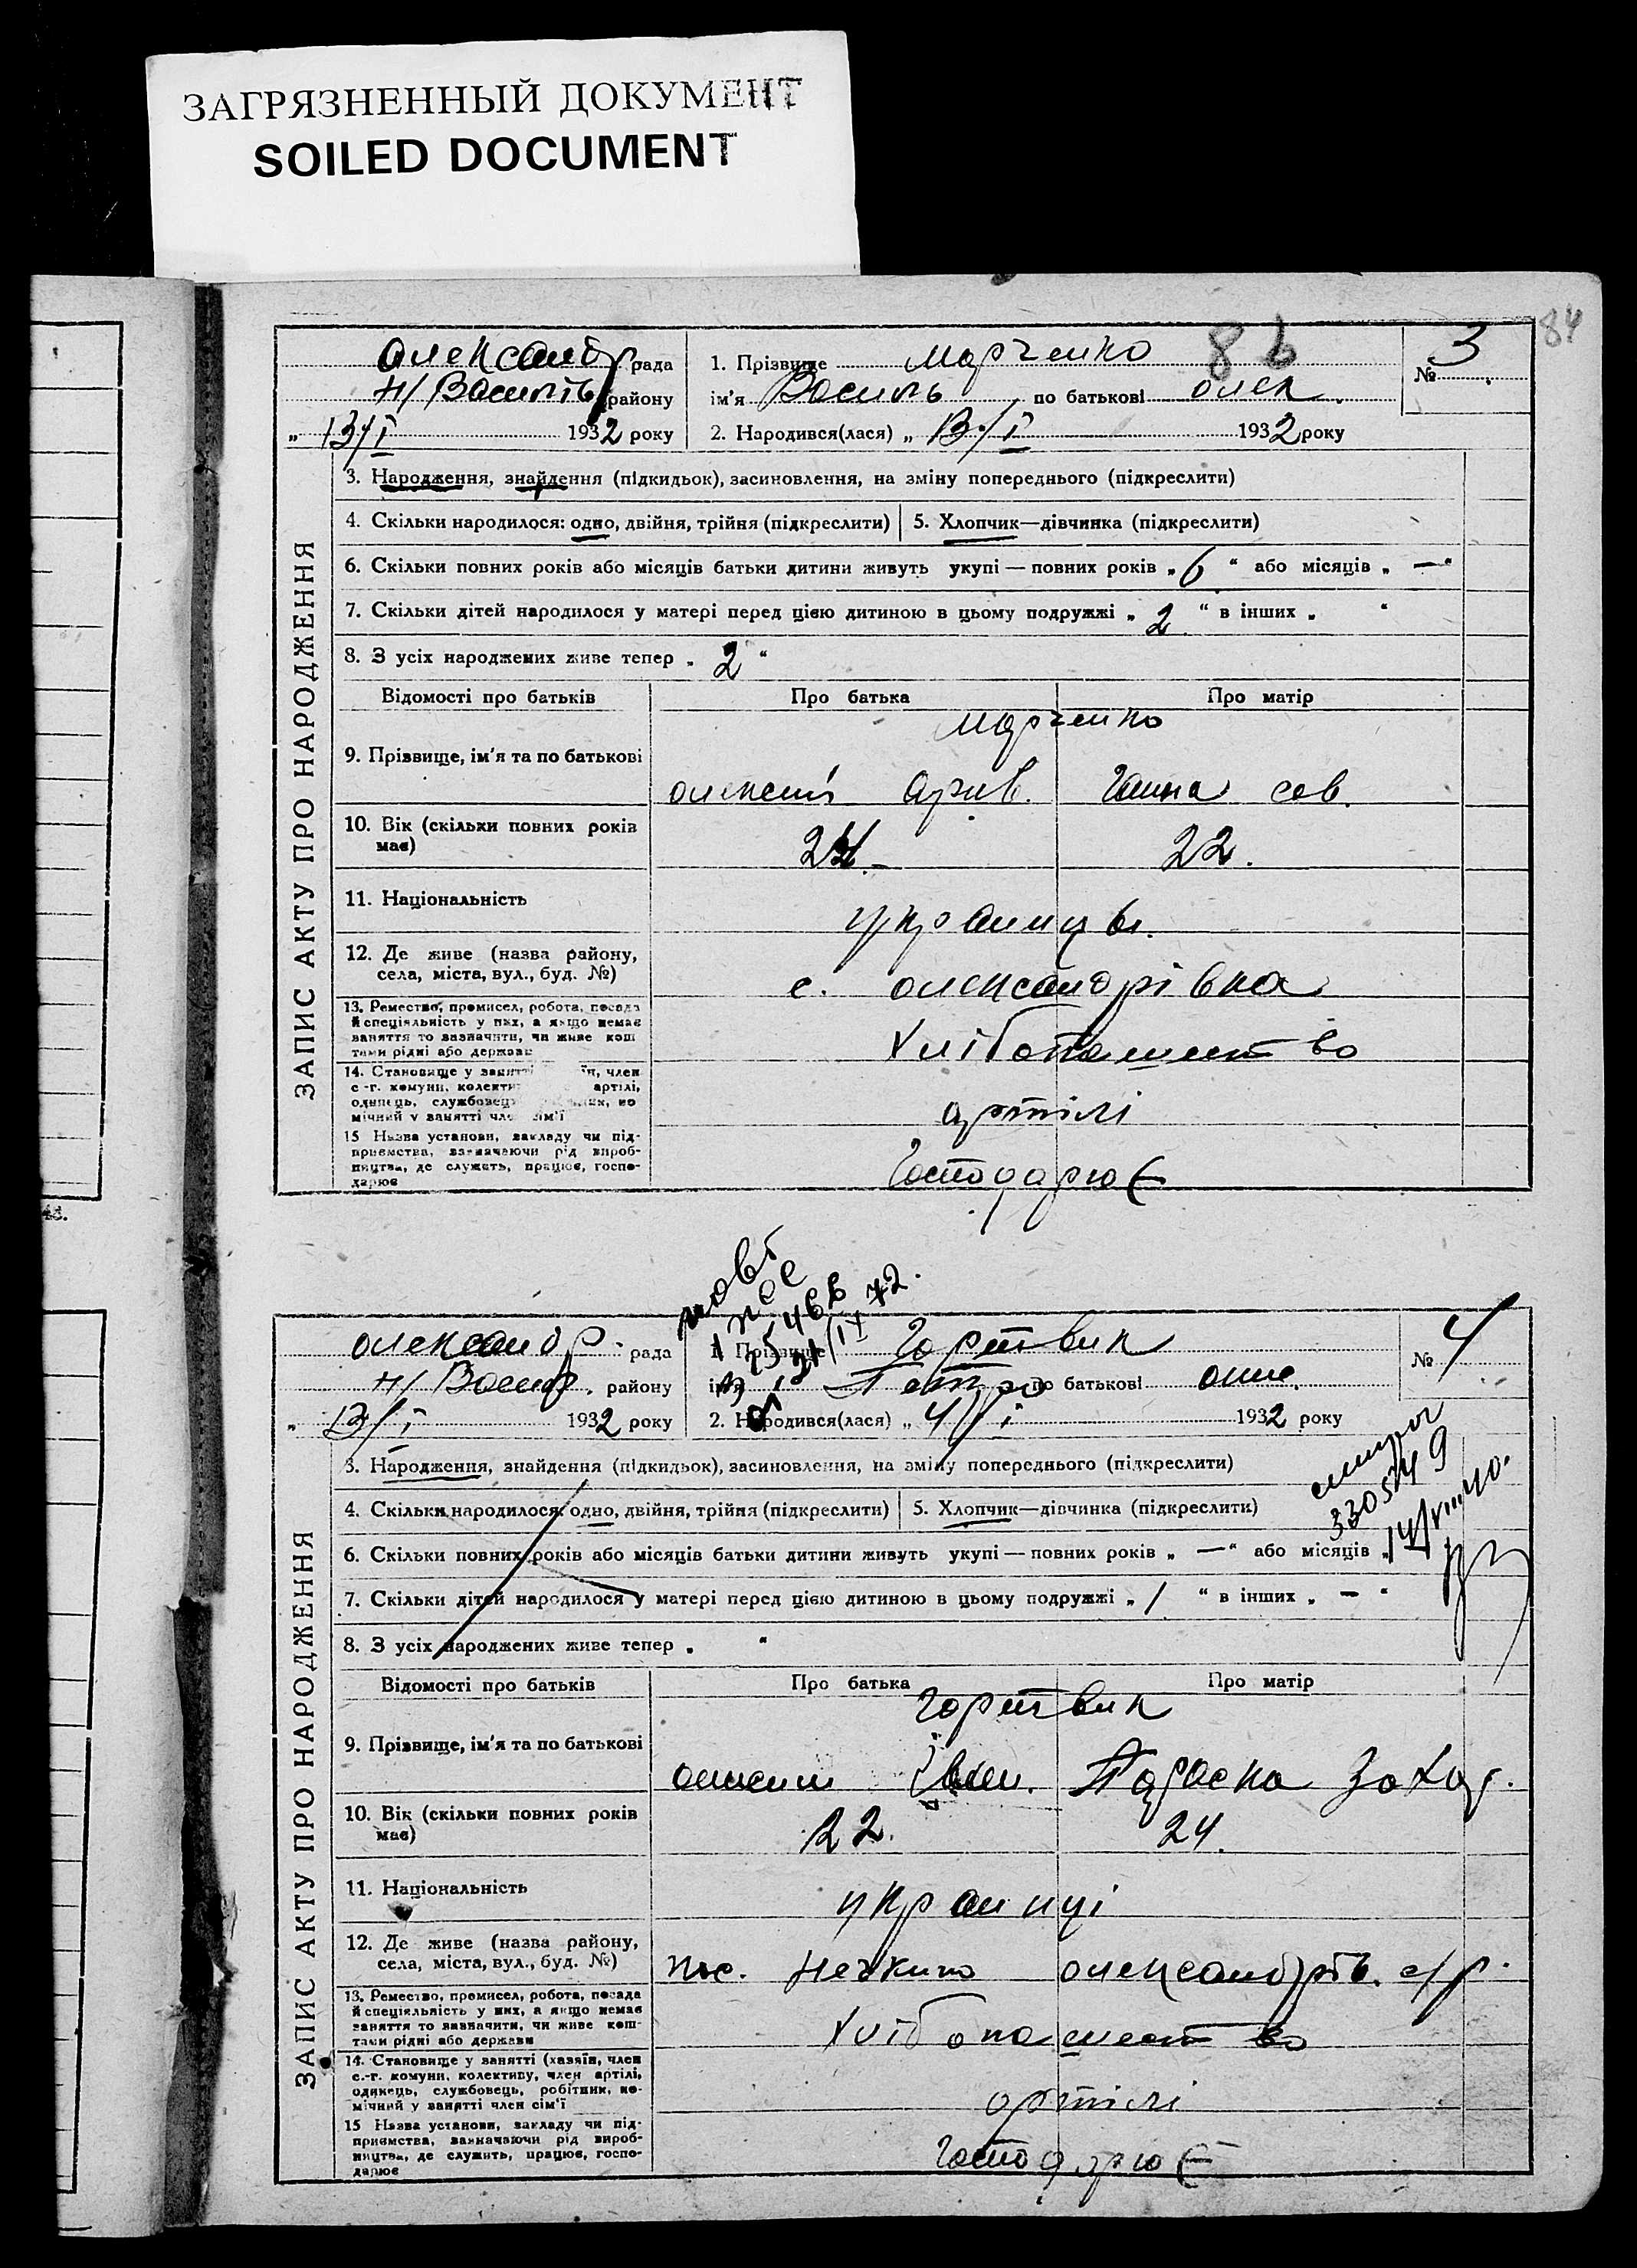 ЗАГРЯЗНЕННЫЙ ДОКУМЕНТ
SOILED DOCUMENT
84
86
Олександр рада
Н/Василів району
"13/I 1932 року
1. Прізвище Марченко
ім'я Василь по батькові Олек.
2. Народився(лася) „ 13/I 1932 року
№ 3
ЗАПИС АКТУ ПРО НАРОДЖЕННЯ
3. Народження, знайдення (підкидьок), засиновлення, на зміну попереднього (підкреслити)
4. Скільки народилося: одно, двійня, трійня (підкреслити) 5. Хлопчик—дівчинка (підкреслити)
6. Скільки повних років або місяців батьки дитини живуть укупі — повних років „ 6 “ або місяців „ — “
7. Скільки дітей народилося у матері перед цією дитиною в цьому подружжі „ 2 “ в інших „ “
8. З усіх народжених живе тепер „ 2 “
Відомості про батьків Про батька Про матір
Марченко
9. Прізвище, ім'я та по батькові
Олексій Ганна Сав.
10. Вік (скільки повних років має)
24 22.
11. Національність
українці.
12. Де живе (назва району, села, міста, вул., буд. №)
с. Олександрівка
13. Ремество, промисел, робота, посада
й спеціяльність у них, а якщо немає
заняття то зазначити, чи живе кош
тами рідні або держави
хліборобство
14. Становище у занятті член
с.-г. комуни, артілі,
одинець, службовець
мічний у занятті член сім'ї
артілі
15 Назва установи, закладу чи під-
приємства, зазначаючи рід вироб-
ництва, де служить, працює, госпо-
дарює
господарює
Олександр. рада
Н/Васил. району
" 13/I 1932 року
1. Прізвище Гортвик
ім'я Петро по батькові Олек.
2. Народився(лася) „ 4/I 1932 року
№ 4
3. Народження, знайдення (підкидьок), засиновлення, на зміну попереднього (підкреслити)
4. Скільки народилося: одно, двійня, трійня (підкреслити) 5. Хлопчик—дівчинка (підкреслити)
6. Скільки повних років або місяців батьки дитини живуть укупі — повних років „ — “ або місяців „
7. Скільки дітей народилося у матері перед цією дитиною в цьому подружжі „ 1 “ в інших „ — “
8. З усіх народжених живе тепер „ “
ЗАПИС АКТУ ПРО НАРОДЖЕННЯ
Відомості про батьків Про батька Про матір
Гортвик
9. Прізвище, ім'я та по батькові
Іван. Параска Захар.
10. Вік (скільки повних років має)
22. 24.
11. Національність
українці
12. Де живе (назва району, села, міста, вул., буд. №)
пос. Нечкино Олександрів. с/р.
13. Ремество, промисел, робота, посада
й спеціяльність у них, а якщо немає
заняття то зазначити, чи живе кош-
тами рідні або держави
14. Становище у занятті (хазяїн, член
с.-г. комуни, колективу, член артілі,
одинець, службовець, робітник, по-
мічний у занятті член сім'ї
артілі
15 Назва установи, закладу чи під-
приємства, зазначаючи рід вироб-
ництва, де служить, працює, госпо-
дарює
господарює